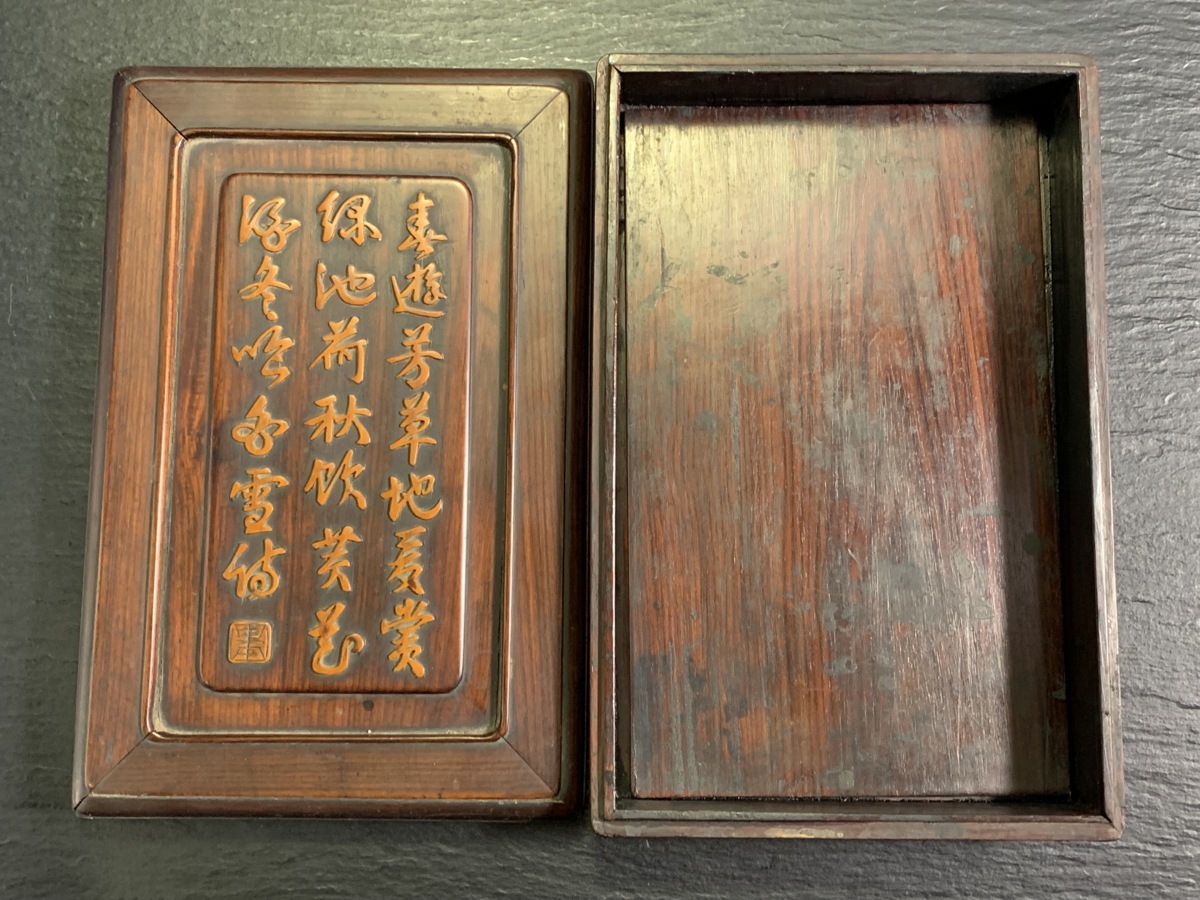 春遊芳草地夏賞
綠池荷秋飲黃花
酒冬吟白雪詩